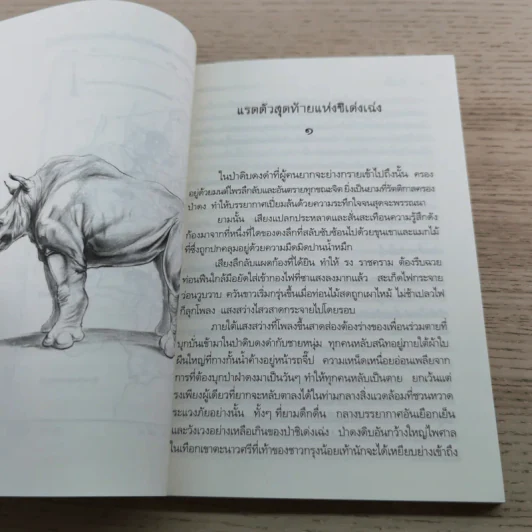 แรดตัวสุดท้ายแห่งชิเด่งเฉ่ง
๑
ในป่าดิบดงดำที่ผู้คนยากจะย่างกรายเข้าไปถึงนั้น ครอง
อยู่ด้วยมนต์ไพรลึกลับและอันตรายทุกขณะจิต ยิ่งเป็นยามที่รัตติกาลครอง
ป่าดง ทำให้บรรยากาศเปี่ยมล้นด้วยความระทึกใจจนสุดจะพรรณนา
ยามนั้น เสียงแปลกประหลาดและสั่นสะเทือนความรู้สึกดัง
ก้องมาจากที่หนึ่งที่ใดของดงลึกที่สลับซับซ้อนไปด้วยขุนเขาและแมกไม้
ที่ซึ่งถูกปกคลุมอยู่ด้วยความมืดมิดปานน้ำหมึก
เสียงลึกลับแผดก้องที่ได้ยิน ทำให้ รง ราชคราม ต้องรีบฉวย
ท่อนฟืนใกล้มือยัดใส่เข้ากองไฟที่ซาแสงลงมากแล้ว สะเก็ดไฟกระจาย
ว่อนวูบวาบ ควันขาวเริ่มกรุ่นขึ้นเมื่อท่อนไม้สดถูกเผาไหม้ ไม่ช้าเปลวไฟ
ก็ลุกโพลง แสงสว่างไสวสาดกระจายไปโดยรอบ
ภายใต้แสงสว่างที่โพลงขึ้นสาดส่องต้องร่างของเพื่อนร่วมตายที่
บุกบั่นเข้ามาในป่าดิบดงดำกับชายหนุ่ม ทุกคนหลับสนิทอยู่ภายใต้ผ้าใบ
ผืนใหญ่ที่กางกั้นน้ำค้างอยู่หน้ารถจี๊ป ความเหน็ดเหนื่อยอ่อนเพลียจาก
การที่ต้องบุกป่าฝ่าดงมาเป็นวันๆ ทำให้ทุกคนหลับเป็นตาย ยกเว้นแต่
รงเพียงผู้เดียวที่ยากจะหลับตาลงได้ในท่ามกลางสิ่งแวดล้อมที่ชวนหวาด
ระแวงภัยอย่างนั้น ทั้งๆ ที่ยามดึกดื่น กลางบรรยากาศอันเยือกเย็น
และวังเวงอย่างเหลือเกินของป่าชิเด่งเฉ่ง ป่าดงดิบอันกว้างใหญ่ไพศาล
ในเทือกเขาตะนาวศรีที่เท้าของชาวกรุงน้อยเท้านักจะได้เหยียบย่างเข้าถึง